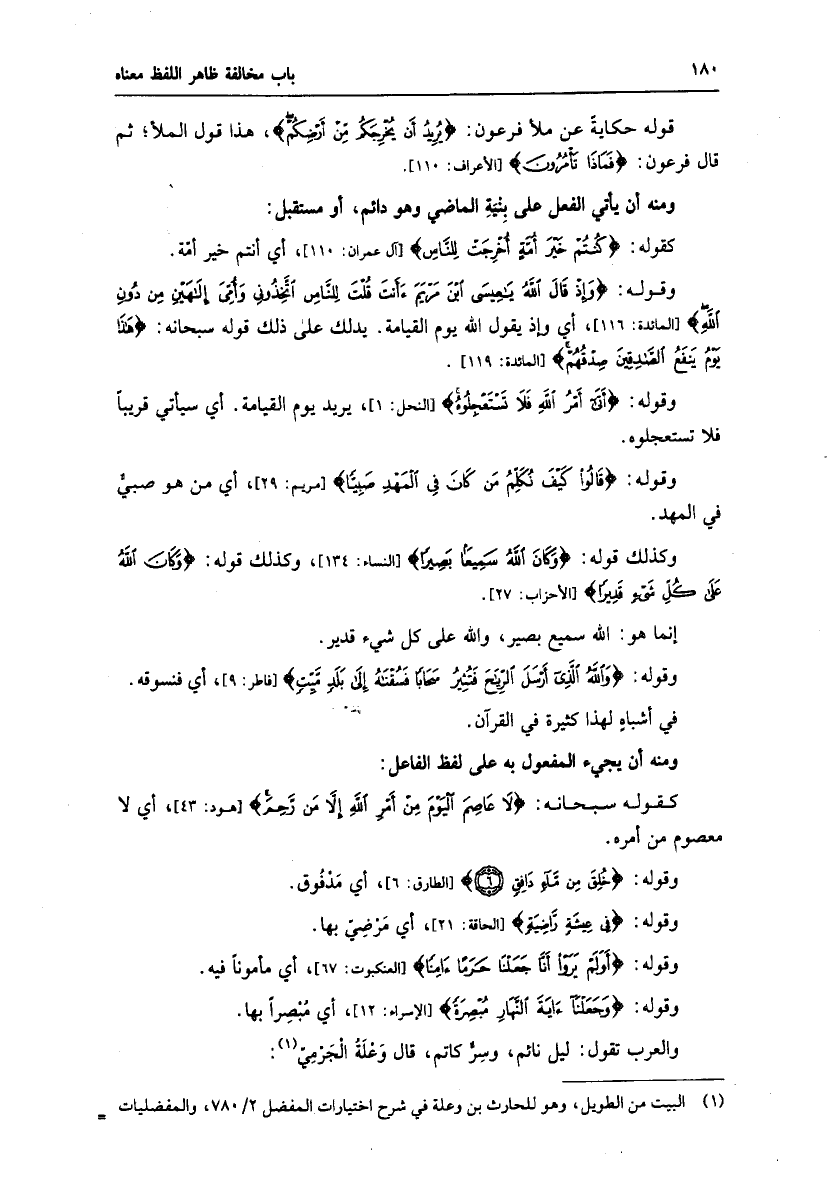 ١٨٠ باب مخالفة ظاهر اللفظ معناه
قوله حكايةً عن ملأ فرعون: ﴿يُرِيدُ أَن يُخْرِجَكُم مِّنْ أَرْضِكُمْ﴾، هذا قول الملأ؛ ثم
قال فرعون: ﴿فَمَاذَا تَأْمُرُونَ﴾ [الأعراف: ١١٠].
ومنه أن يأتي الفعل على بِنْيَةِ الماضي وهو دائم، أو مستقبل:
كقوله: ﴿كُنتُمْ خَيْرَ أُمَّةٍ أُخْرِجَتْ لِلنَّاسِ﴾ [آل عمران: ١١٠]، أي أنتم خير أمّة.
وقوله: ﴿وَإِذْ قَالَ اللَّهُ يَٰعِيسَى ابْنَ مَرْيَمَ ءَأَنتَ قُلْتَ لِلنَّاسِ اتَّخِذُونِي وَأُمِّيَ إِلَٰهَيْنِ مِن دُونِ
اللَّهِ﴾ [المائدة: ١١٦]، أي وإذ يقول الله يوم القيامة. يدلك على ذلك قوله سبحانه: ﴿هَٰذَا
يَوْمُ يَنفَعُ الصَّٰدِقِينَ صِدْقُهُمْ﴾ [المائدة: ١١٩].
وقوله: ﴿أَتَىٰٓ أَمْرُ اللَّهِ فَلَا تَسْتَعْجِلُوهُ﴾ [النحل: ١]، يريد يوم القيامة. أي سيأتي قريباً
فلا تستعجلوه.
وقوله: ﴿قَالُوا كَيْفَ نُكَلِّمُ مَن كَانَ فِي الْمَهْدِ صَبِيًّا﴾ [مريم: ٢٩]، أي من هو صبيٌّ
في المهد.
وكذلك قوله: ﴿وَكَانَ اللَّهُ سَمِيعًا بَصِيرًا﴾ [النساء: ١٣٤]، وكذلك قوله: ﴿وَكَانَ اللَّهُ
عَلَىٰ كُلِّ شَيْءٍ قَدِيرًا﴾ [الأحزاب: ٢٧].
إنما هو: الله سميع بصير، والله على كل شيء قدير.
وقوله: ﴿وَاللَّهُ الَّذِيٓ أَرْسَلَ الرِّيَٰحَ فَتُثِيرُ سَحَابًا فَسُقْنَٰهُ إِلَىٰ بَلَدٍ مَّيِّتٍ﴾ [فاطر: ٩]، أي فنسوقه.
في أشباهٍ لهذا كثيرة في القرآن.
ومنه أن يجيء المفعول به على لفظ الفاعل:
كقوله سبحانه: ﴿لَا عَاصِمَ الْيَوْمَ مِنْ أَمْرِ اللَّهِ إِلَّا مَن رَّحِمَ﴾ [هود: ٤٣]، أي لا
معصوم من أمره.
وقوله: ﴿خُلِقَ مِن مَّآءٍ دَافِقٍ ٦﴾ [الطارق: ٦]، أي مَدْفُوق.
وقوله: ﴿فِي عِيشَةٍ رَّاضِيَةٍ﴾ [الحاقة: ٢١]، أي مَرْضِيّ بها.
وقوله: ﴿أَوَلَمْ يَرَوْا أَنَّا جَعَلْنَا حَرَمًا ءَامِنًا﴾ [العنكبوت: ٦٧]، أي مأموناً فيه.
وقوله: ﴿وَجَعَلْنَآ ءَايَةَ النَّهَارِ مُبْصِرَةً﴾ [الإسراء: ١٢]، أي مُبْصِراً بها.
والعرب تقول: ليل نائم، وسِرٌّ كاتم، قال وَعْلَةُ الْجَرْمِيّ(١):
(١) البيت من الطويل، وهو للحارث بن وعلة في شرح اختيارات المفضل ٢/ ٧٨٠، والمفضليات =